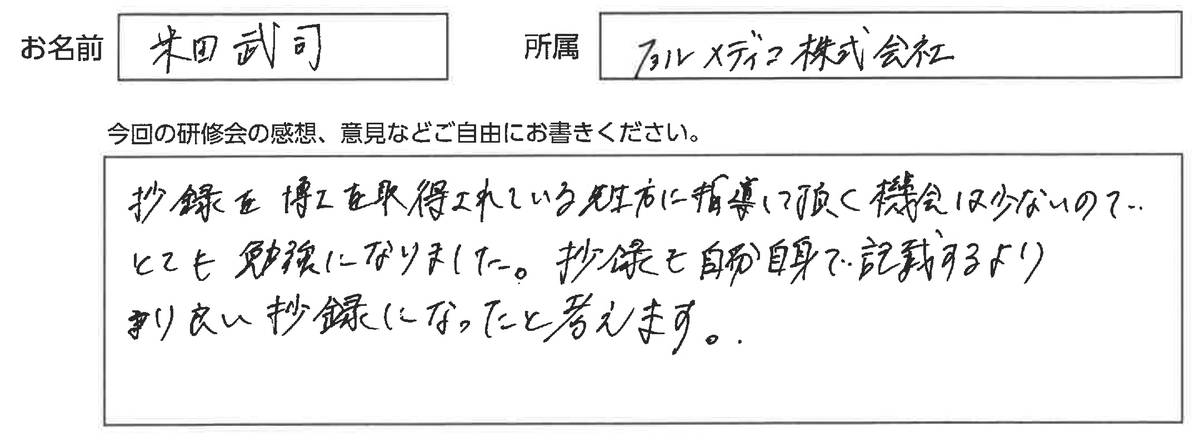 お名前 米田武司 所属 フォルメディコ株式会社
今回の研修会の感想、意見などご自由にお書きください。
抄録を博士を取得されている先生方に指導して頂く機会は少ないので
とても勉強になりました。抄録も自分自身で記載するより
より良い抄録になったと考えます。